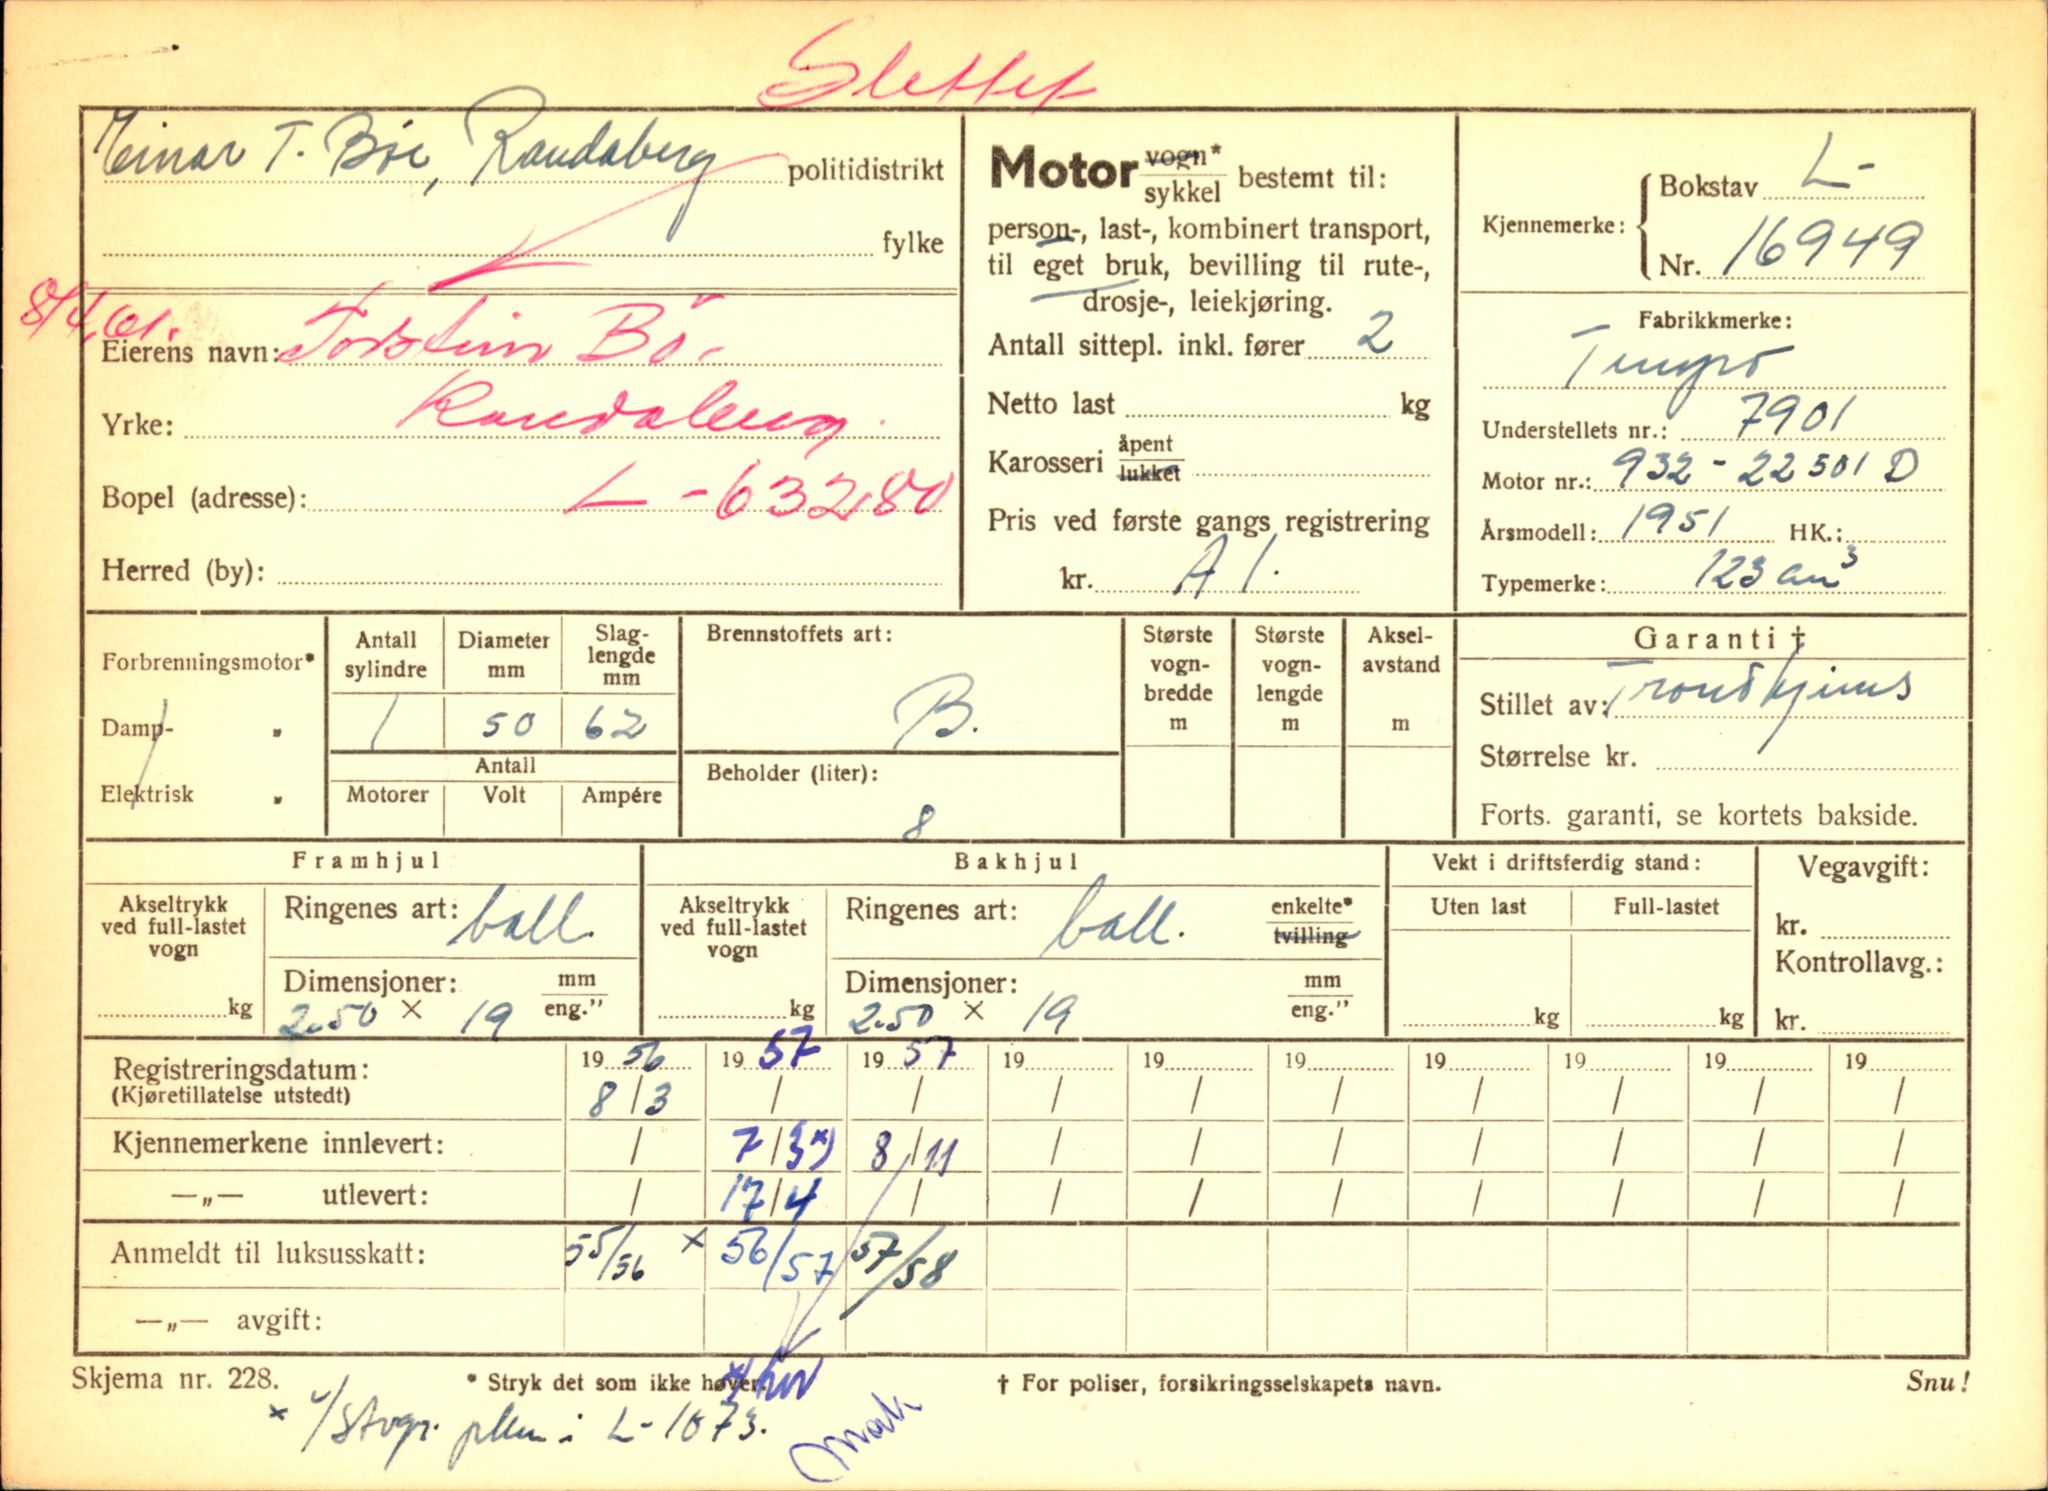 Slettet
Einar T. Bøe, Randaberg politidistrikt
fylke
8/4.61.
Eierens navn: Torstein Bö.
Yrke: Randaberg.
Bopel (adresse): L-63280
Herred (by):
Motor vogn* sykkel bestemt til:
person-, last-, kombinert transport,
til eget bruk, bevilling til rute-,
drosje-, leiekjøring.
Antall sittepl. inkl. fører 2
Netto last kg
Karosseri åpent lukket
Pris ved første gangs registrering
kr. A 1.
Kjennemerke: Bokstav L-
Nr. 16949
Fabrikkmerke:
Tempo
Understellets nr.: 7901
Motor nr.: 932-22501 D
Årsmodell: 1951 HK.:
Typemerke: 123 cm³
Forbrenningsmotor*
Damp- "
Elektrisk "
Antall sylindre Diameter mm Slag-lengde mm
1 50 62
Antall
Motorer Volt Ampére
Brennstoffets art:
B.
Beholder (liter):
8
Største vogn-bredde m Største vogn-lengde m Aksel-avstand m
Garanti †
Stillet av: Trondhjems
Størrelse kr.
Forts. garanti, se kortets bakside.
Framhjul
Akseltrykk ved full-lastet vogn kg
Ringenes art: ball.
Dimensjoner: mm eng."
2.50 × 19
Bakhjul
Akseltrykk ved full-lastet vogn kg
Ringenes art: ball. enkelte* tvilling
Dimensjoner: mm eng."
2.50 × 19
Vekt i driftsferdig stand:
Uten last Full-lastet
kg kg
Vegavgift:
kr.
Kontrollavg.:
kr.
Registreringsdatum: 19 56 19 57 19 57 19 19 19 19 19 19 19
(Kjøretillatelse utstedt) 8/3 / / / / / / / / /
Kjennemerkene innlevert: / 7/3 *) 8/11 / / / / / / /
—„— utlevert: / 17/4 / / / / / / / /
Anmeldt til luksusskatt: 55/56 × 56/57 57/58
—„— avgift:
Skjema nr. 228. * Stryk det som ikke høver. † For poliser, forsikringsselskapets navn. Snu!
× L-1073.